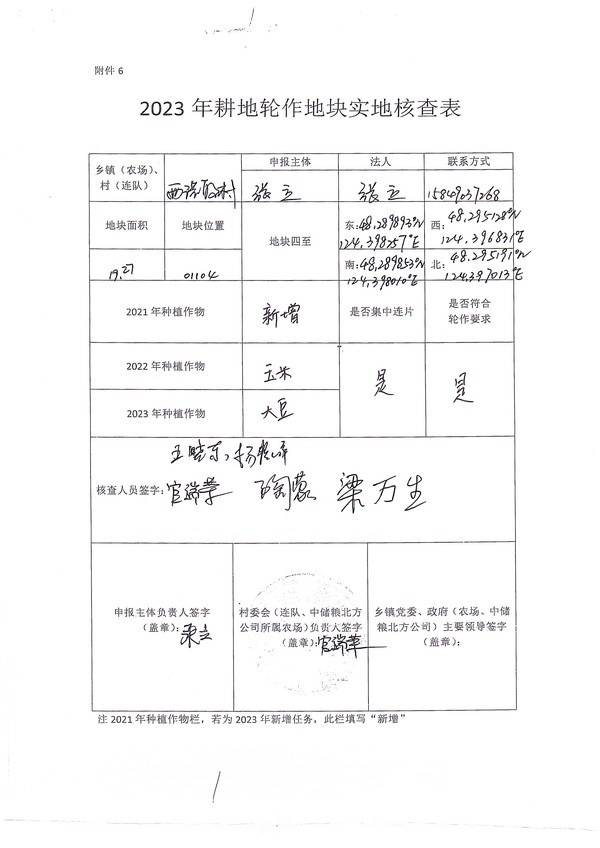 附件 6
2023 年耕地轮作地块实地核查表
乡镇（农场）、
村（连队）
申报主体
法人
联系方式
张立
张立
15849037268
地块面积
地块位置
地块四至
东:48.289893°N
124.398257°E
西:48.295128°N
124.396831°E
19.27
01104
南:48.289853°N
124.398010°E
北:48.295191°N
124.397013°E
2021 年种植作物
新增
是否集中连片
是否符合
轮作要求
2022 年种植作物
玉米
是
是
2023 年种植作物
大豆
核查人员签字:
梁万生
申报主体负责人签字
（盖章）:
村委会（连队、中储粮北方
公司所属农场）负责人签字
（盖章）:
乡镇党委、政府（农场、中储
粮北方公司）主要领导签字
（盖章）:
注 2021 年种植作物栏，若为 2023 年新增任务，此栏填写“新增”